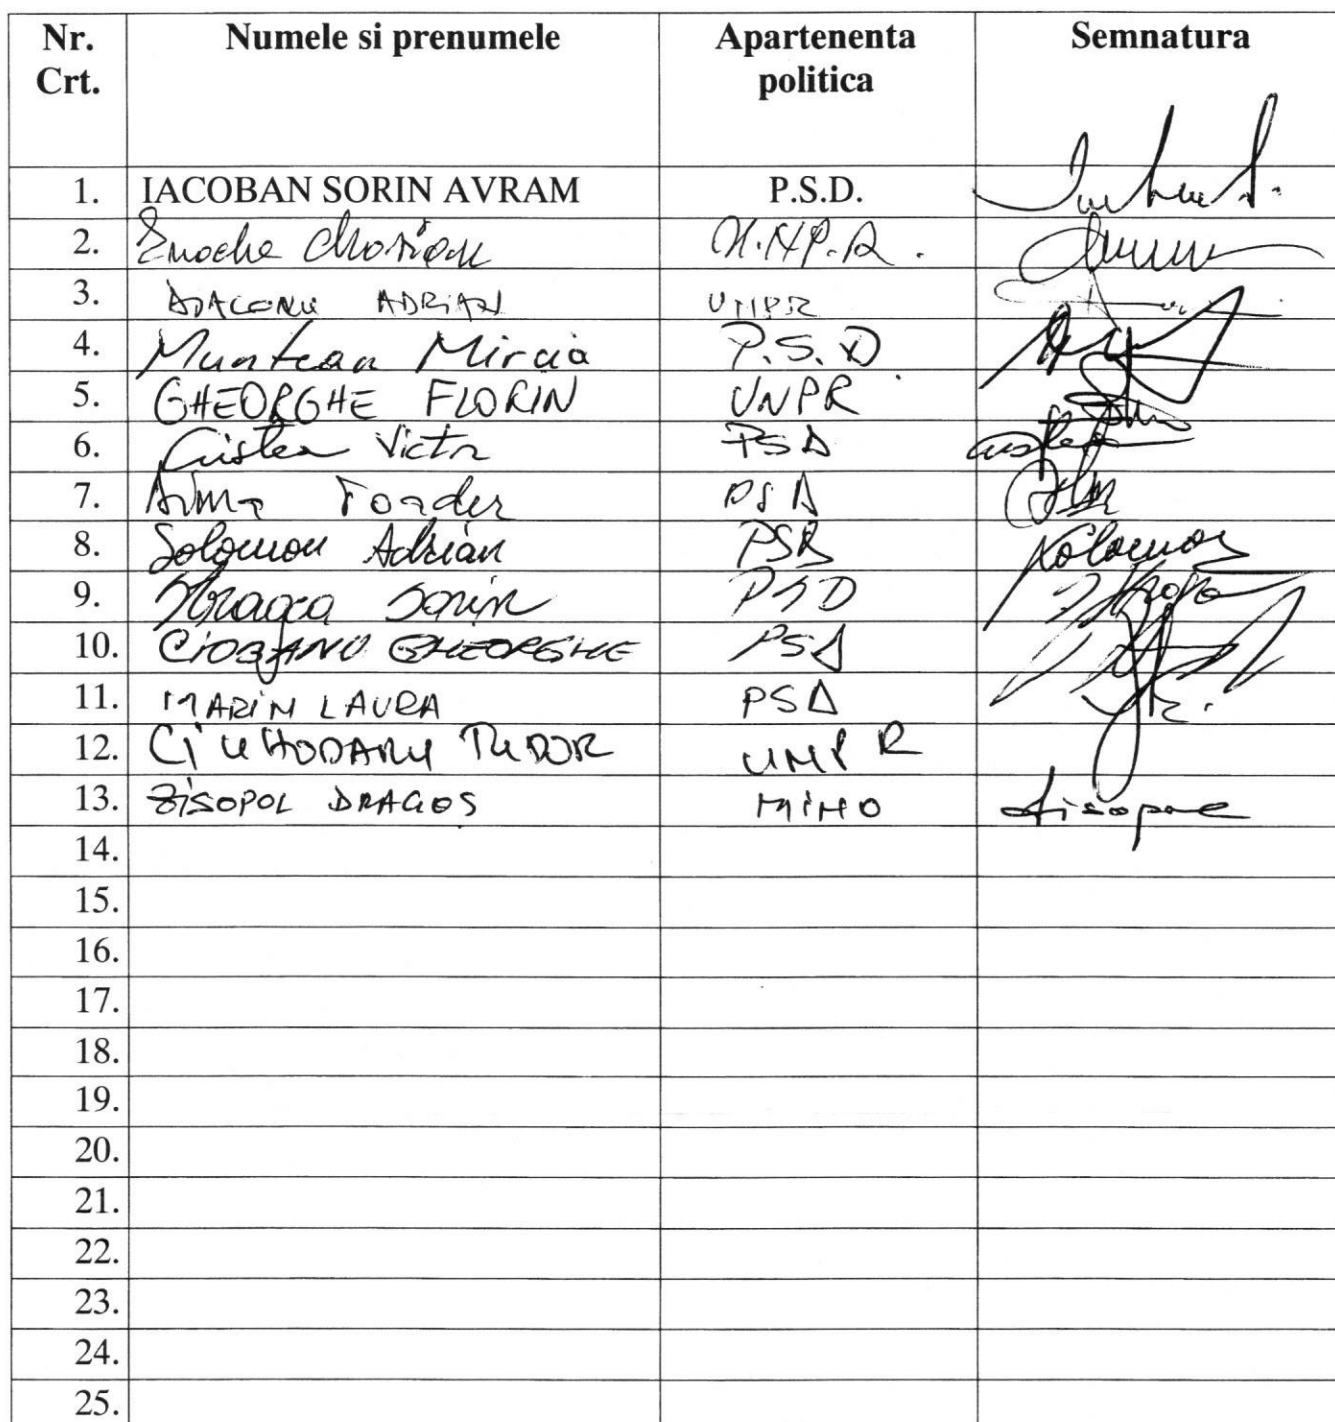 Nr. Crt. Numele si prenumele Apartenenta politica Semnatura
1. IACOBAN SORIN AVRAM P.S.D.
2. Enache Marian U.N.P.R.
3. DIACONU ADRIAN UNPR
4. Muntean Mircia P.S.D
5. GHEORGHE FLORIN UNPR
6. Cristea Victor PSD
7. Toader PSD
8. Solomon Adrian PSD Solomon
9. Sorin PSD
10. CIOBANU GHEORGHE PSD
11. MARIN LAURA PSD
12. CIUHODARU TUDOR UNPR
13. ZISOPOL DRAGOS MINO Zisopol
14.
15.
16.
17.
18.
19.
20.
21.
22.
23.
24.
25.